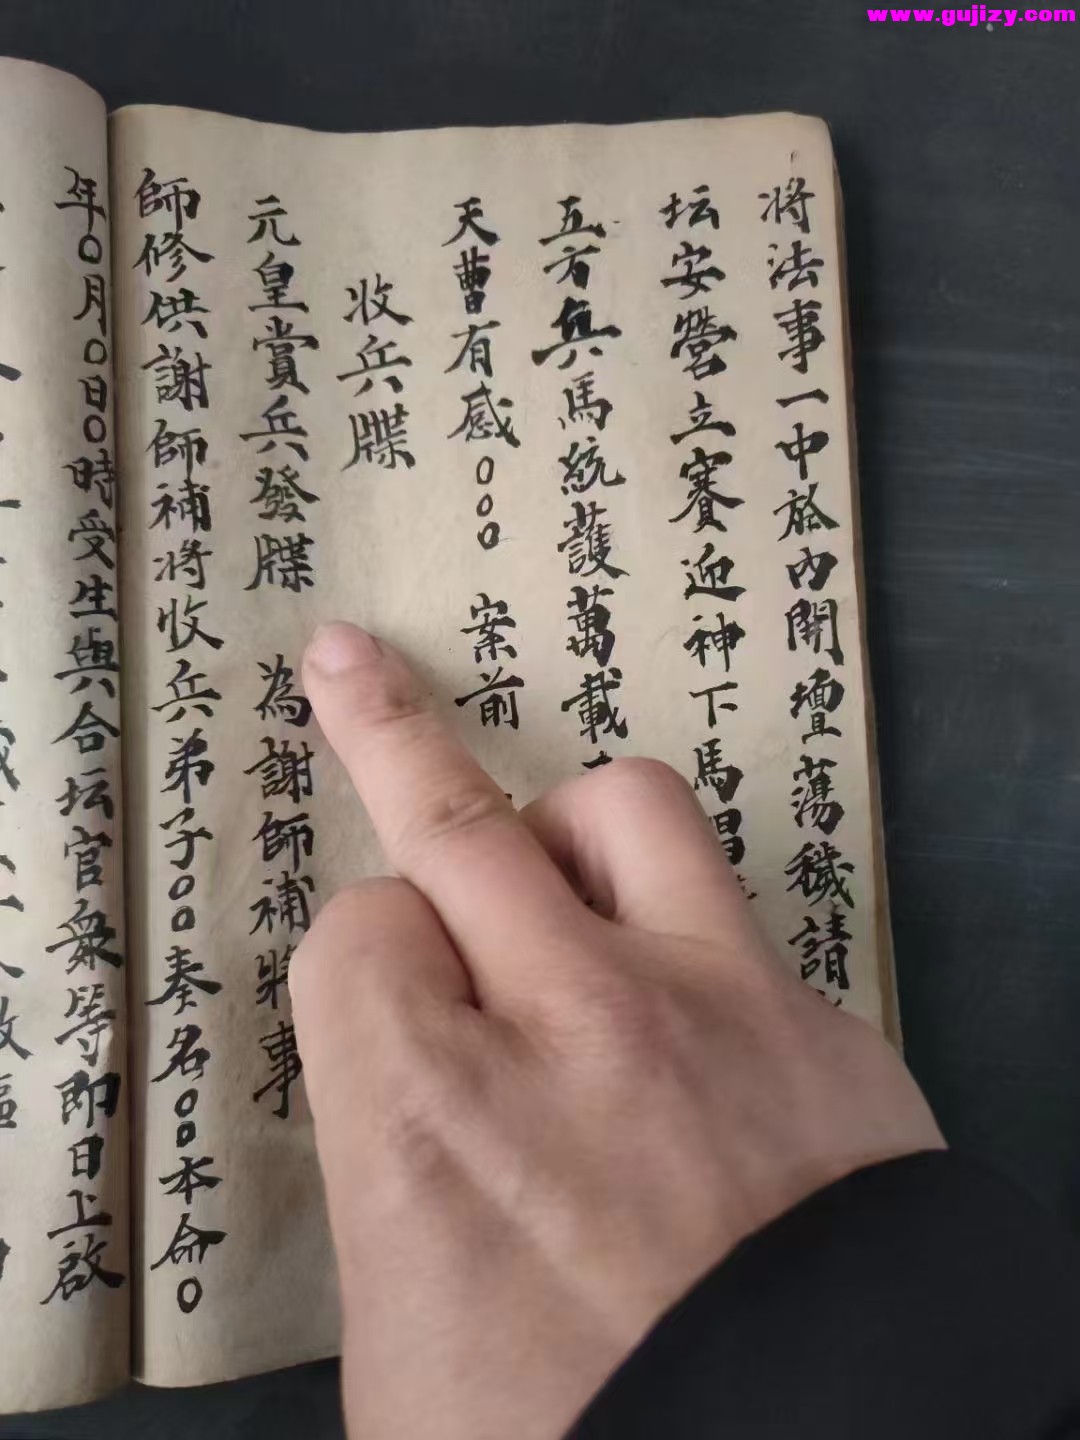 www.gujizy.com
將法事一中於內開壇蕩穢請
坛安營立賽迎神下馬
五方兵馬統護萬載
天曹有感〇〇〇 案前
收兵牒
元皇賞兵發牒 為謝師補將事
師修供謝師補將收兵弟子〇〇奏名〇〇本命〇
年〇月〇日〇時受生與合坛官眾等即日上啟